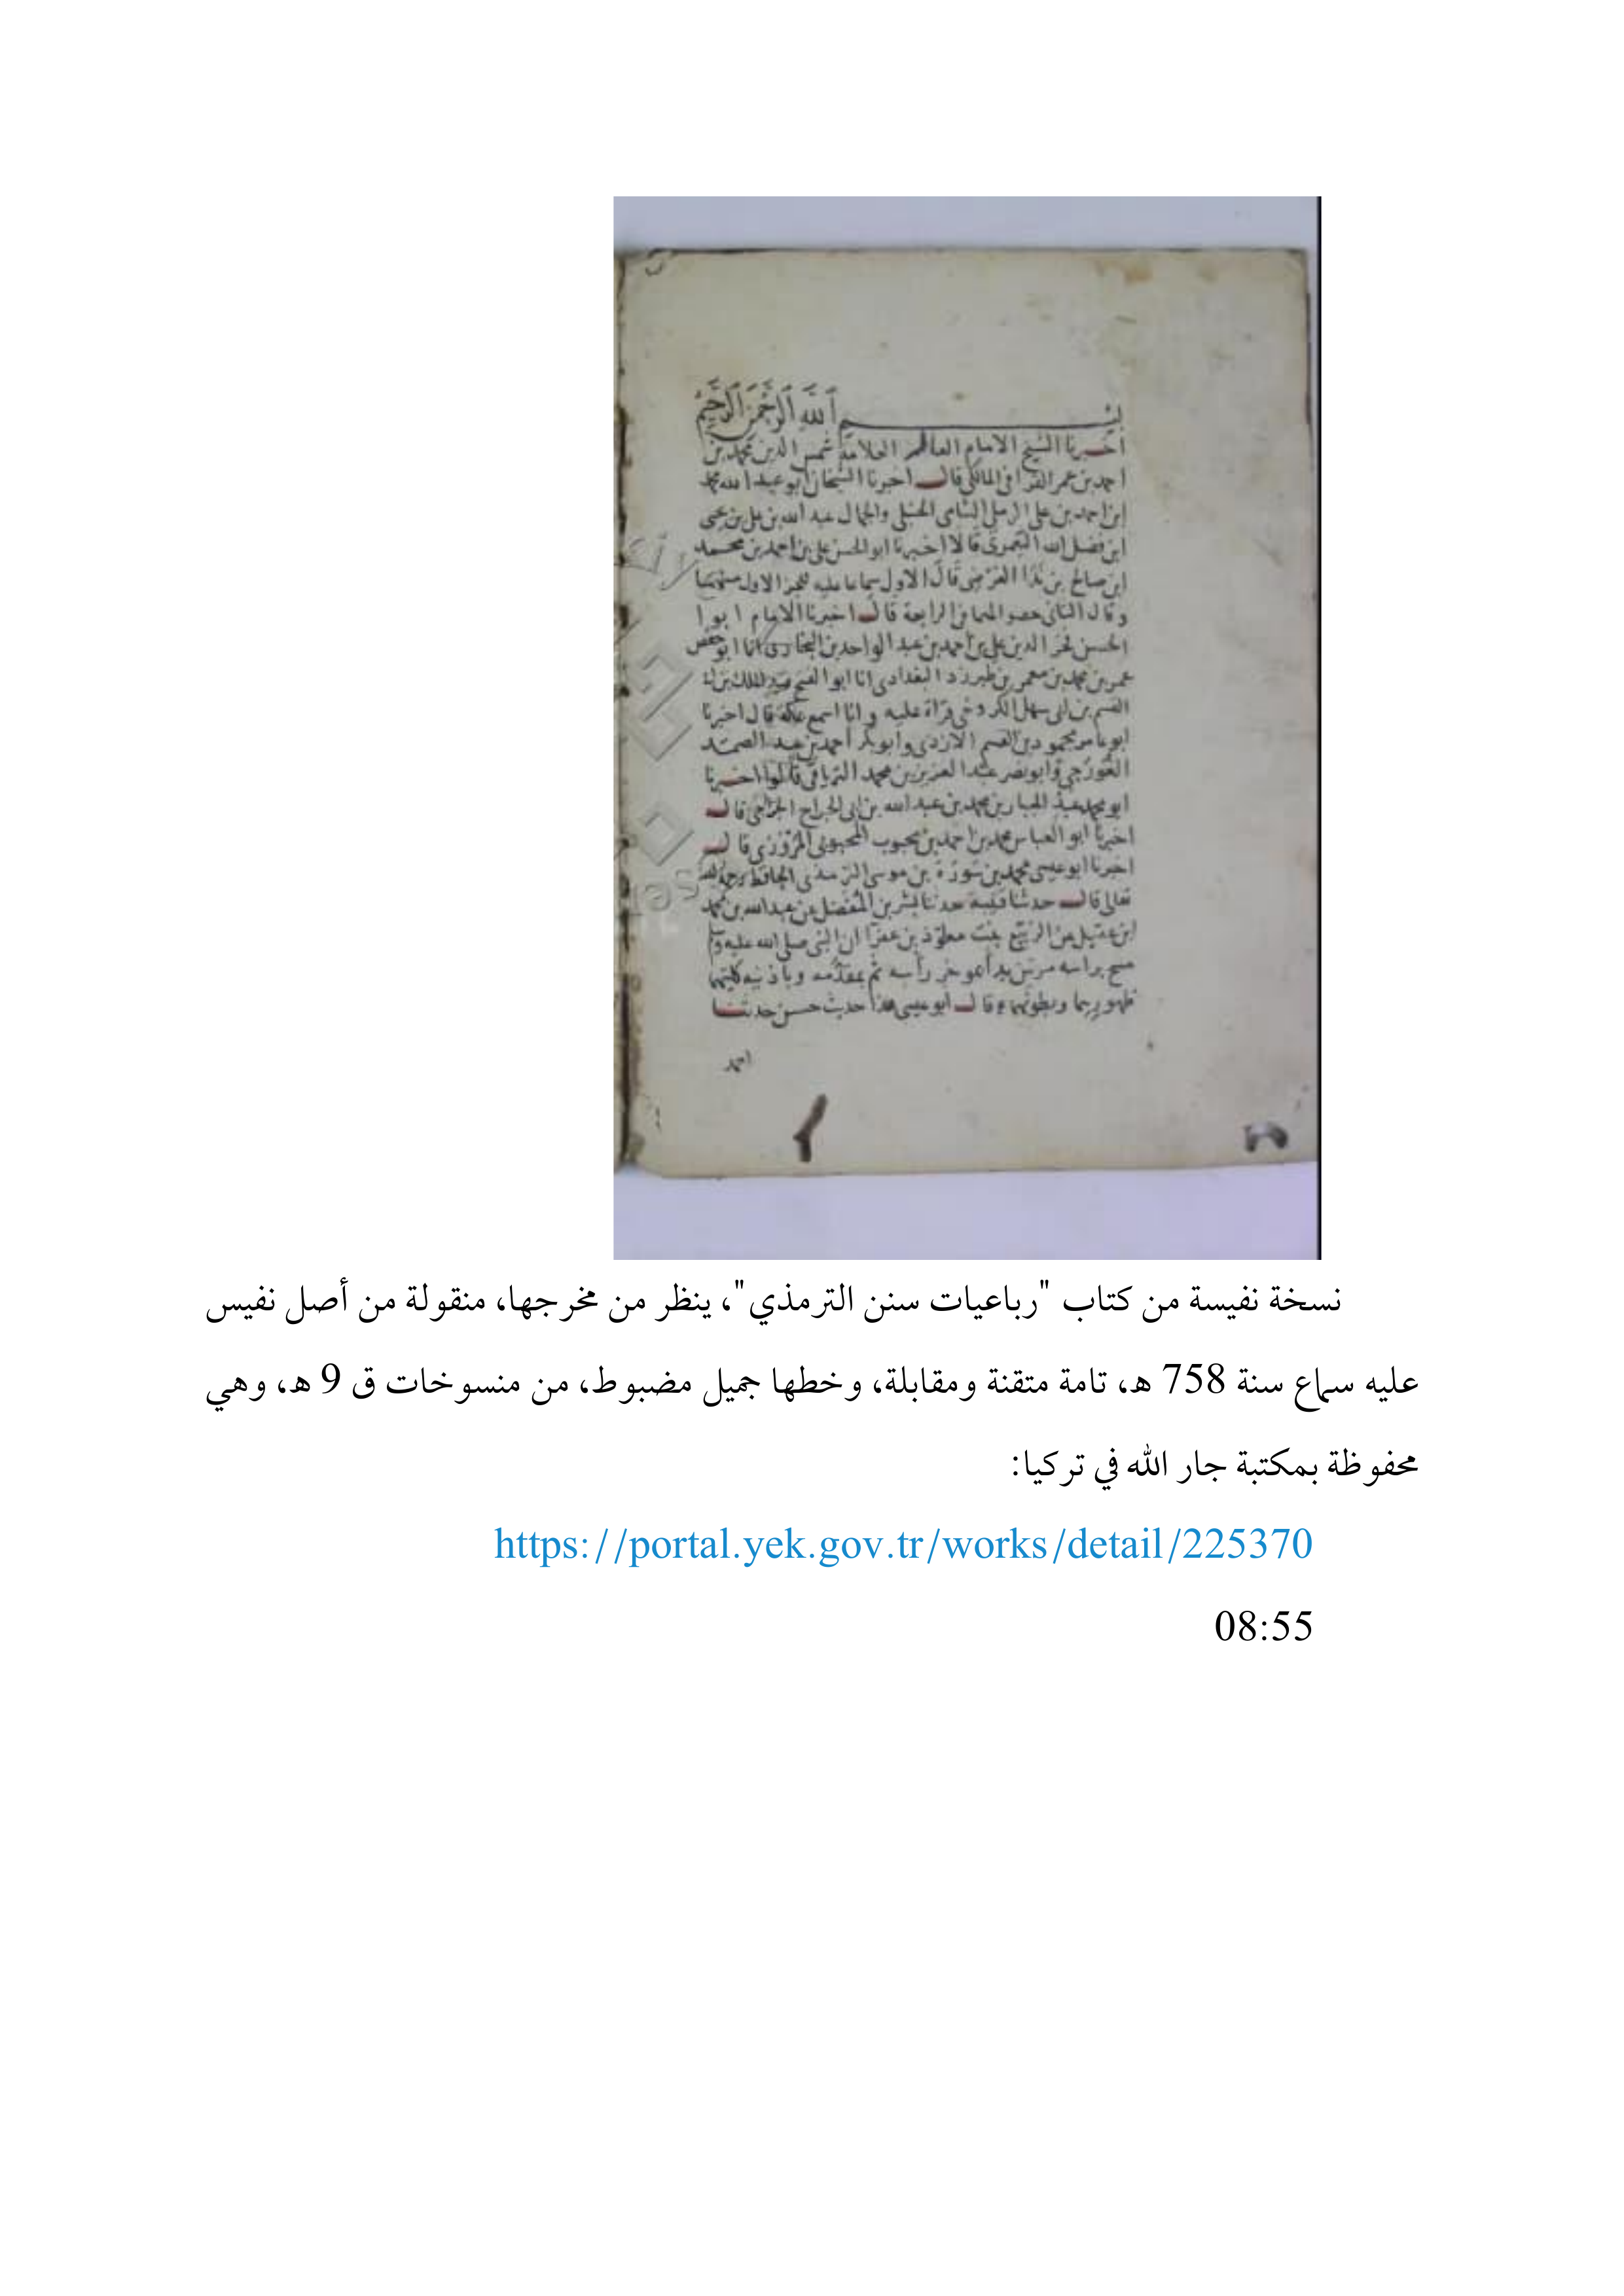 بسم الله الرحمن الرحيم
اخبرنا الشيخ الامام العالم العلامة شمس الدين محمد بن
احمد بن عمر القرافى المالكى قال اخبرنا الشيخان ابو عبد الله محمد
ابن احمد بن على الرملى الشامى الحنبلى والجمال عبد الله بن على بن يحيى
ابن فضل الله العمرى قالا اخبرنا ابو الحسن على بن احمد بن محمد
ابن صالح بن العرضى قال الاول سماعا عليه للجزء الاول
وقال الثانى فى الرابعة قال اخبرنا الامام ابوا
الحسن فخر الدين على بن احمد بن عبد الواحد بن البخارى انا ابو حفص
عمر بن محمد بن معمر بن طبرزد البغدادى انا ابو الفتح عبد الملك بن
القسم بن ابى سهل الكروخى قراة عليه وانا اسمع قال اخبرنا
ابو عامر محمود بن القسم الازدى وابو بكر احمد بن عبد الصمد
الغورجى وابو نصر عبد العزيز بن محمد الترياقى قالوا اخبرنا
ابو محمد عبد الجبار بن محمد بن عبد الله بن ابى الجراح الجراحى قال
اخبرنا ابو العباس محمد بن احمد بن محبوب المحبوبى المروزى قال
اخبرنا ابو عيسى محمد بن سورة بن موسى الترمذى الحافظ رحمه الله
تعالى قال حدثنا قتيبة حدثنا بشر بن المفضل عن عبد الله بن محمد
ابن عقيل عن الربيع بنت معوذ بن عفرا ان النبى صلى الله عليه وسلم
مسح براسه مرتين بدأ بموخر رأسه ثم بمقدمه وباذنيه كلتيهما
ظهورهما وبطونهما قال ابو عيسى هذا حديث حسن حدثنا
احمد
نسخة نفيسة من كتاب "رباعيات سنن الترمذي"، ينظر من مخرجها، منقولة من أصل نفيس
عليه سماع سنة 758 هـ، تامة متقنة ومقابلة، وخطها جميل مضبوط، من منسوخات ق 9 هـ، وهي
محفوظة بمكتبة جار الله في تركيا:
https://portal.yek.gov.tr/works/detail/225370
08:55